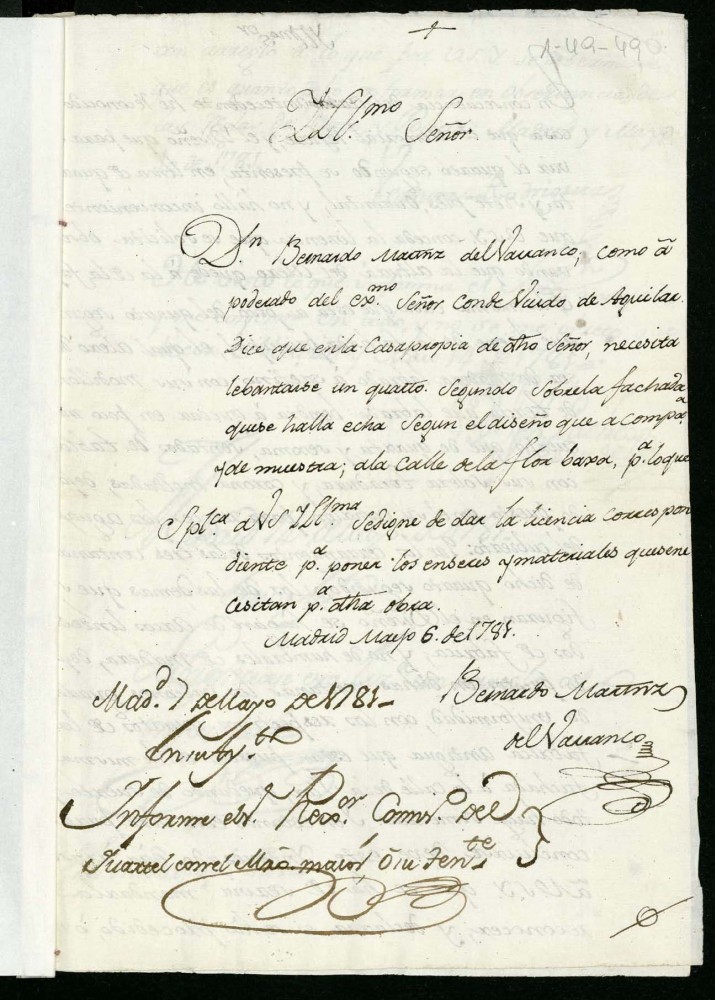 1-49-49
Yll.mo Señor
D.n Bernardo Martnz del Varranco, como a
poderado del ex.mo Señor Conde Viudo de Aguilar.
Dice que en la Casa propia de dho Señor, necesita
lebantarse un quatto. Segundo Sobre la fachada
que se halla echa Segun el diseño que acompa.a
y de muestra; ala Calle de la flor baxa, p.a lo que
Spl.ca a VS Yll.ma Se digne de dar la licencia correspon
diente p.a poner los enseres y materiales que se ne
cesitan p.a dha obra.
Madrid Mayo 6. de 1781.
Bernardo Martnz
del Varranco
Mad.d 7 de Mayo de 1781
En su Ay.to
Informe el S.r Rex.or Comis.o del
Quartel con el Mro. maior ó su Ten.te